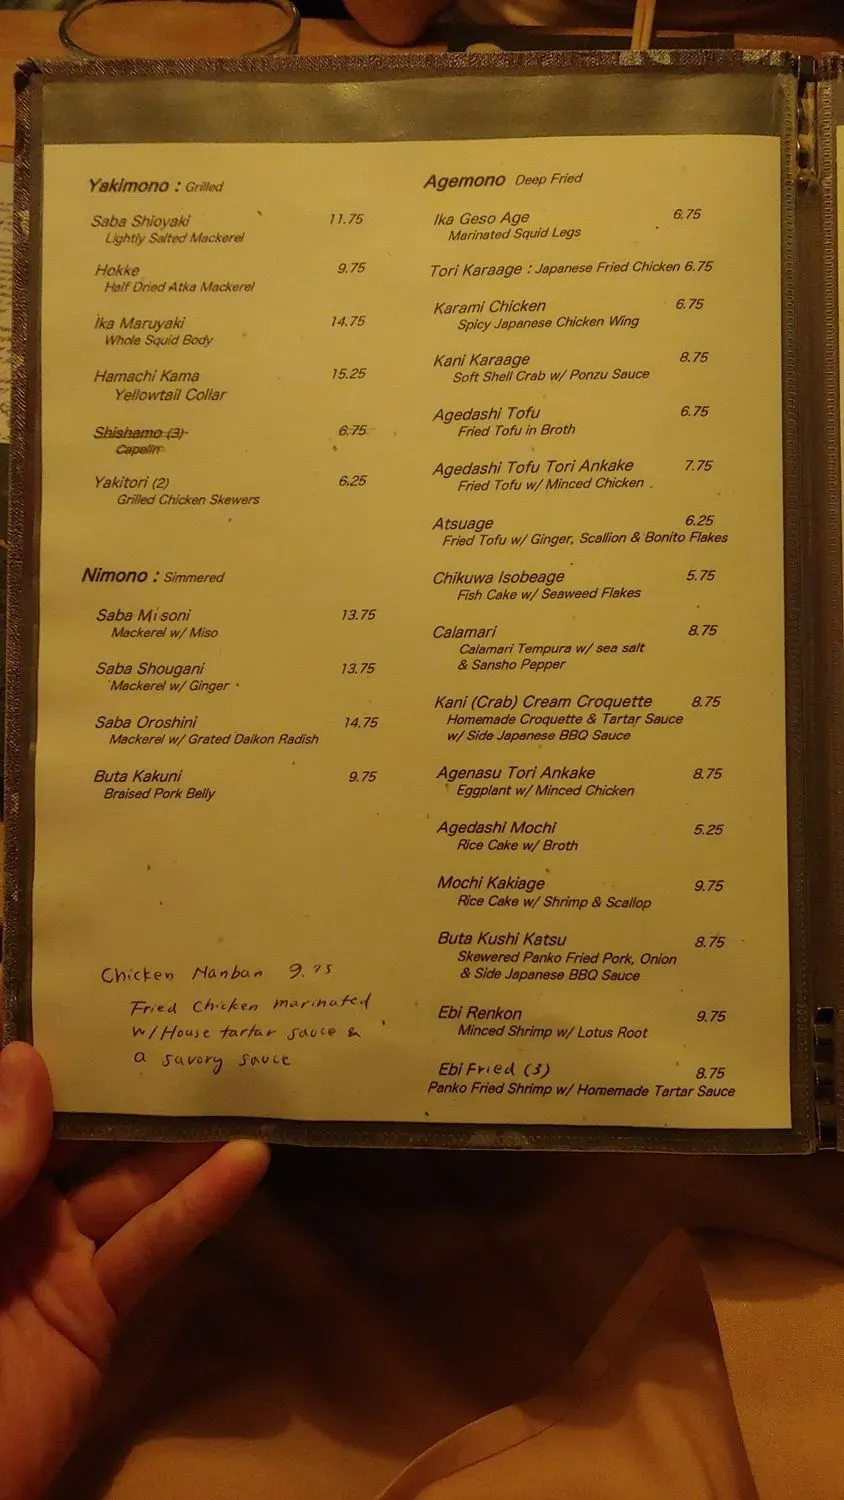 Yakimono : Grilled
Saba Shioyaki 11.75
Lightly Salted Mackerel
Hokke 9.75
Half Dried Atka Mackerel
Ika Maruyaki 14.75
Whole Squid Body
Hamachi Kama 15.25
Yellowtail Collar
Shishamo (3) 6.75
Capelin
Yakitori (2) 6.25
Grilled Chicken Skewers
Nimono : Simmered
Saba Misoni 13.75
Mackerel w/ Miso
Saba Shougani 13.75
Mackerel w/ Ginger
Saba Oroshini 14.75
Mackerel w/ Grated Daikon Radish
Buta Kakuni 9.75
Braised Pork Belly
Chicken Nanban 9.75
Fried Chicken marinated
w/House tartar sauce &
a savory sauce
Agemono Deep Fried
Ika Geso Age 6.75
Marinated Squid Legs
Tori Karaage : Japanese Fried Chicken 6.75
Karami Chicken 6.75
Spicy Japanese Chicken Wing
Kani Karaage 8.75
Soft Shell Crab w/ Ponzu Sauce
Agedashi Tofu 6.75
Fried Tofu in Broth
Agedashi Tofu Tori Ankake 7.75
Fried Tofu w/ Minced Chicken
Atsuage 6.25
Fried Tofu w/ Ginger, Scallion & Bonito Flakes
Chikuwa Isobeage 5.75
Fish Cake w/ Seaweed Flakes
Calamari 8.75
Calamari Tempura w/ sea salt
& Sansho Pepper
Kani (Crab) Cream Croquette 8.75
Homemade Croquette & Tartar Sauce
w/ Side Japanese BBQ Sauce
Agenasu Tori Ankake 8.75
Eggplant w/ Minced Chicken
Agedashi Mochi 5.25
Rice Cake w/ Broth
Mochi Kakiage 9.75
Rice Cake w/ Shrimp & Scallop
Buta Kushi Katsu 8.75
Skewered Panko Fried Pork, Onion
& Side Japanese BBQ Sauce
Ebi Renkon 9.75
Minced Shrimp w/ Lotus Root
Ebi Fried (3) 8.75
Panko Fried Shrimp w/ Homemade Tartar Sauce